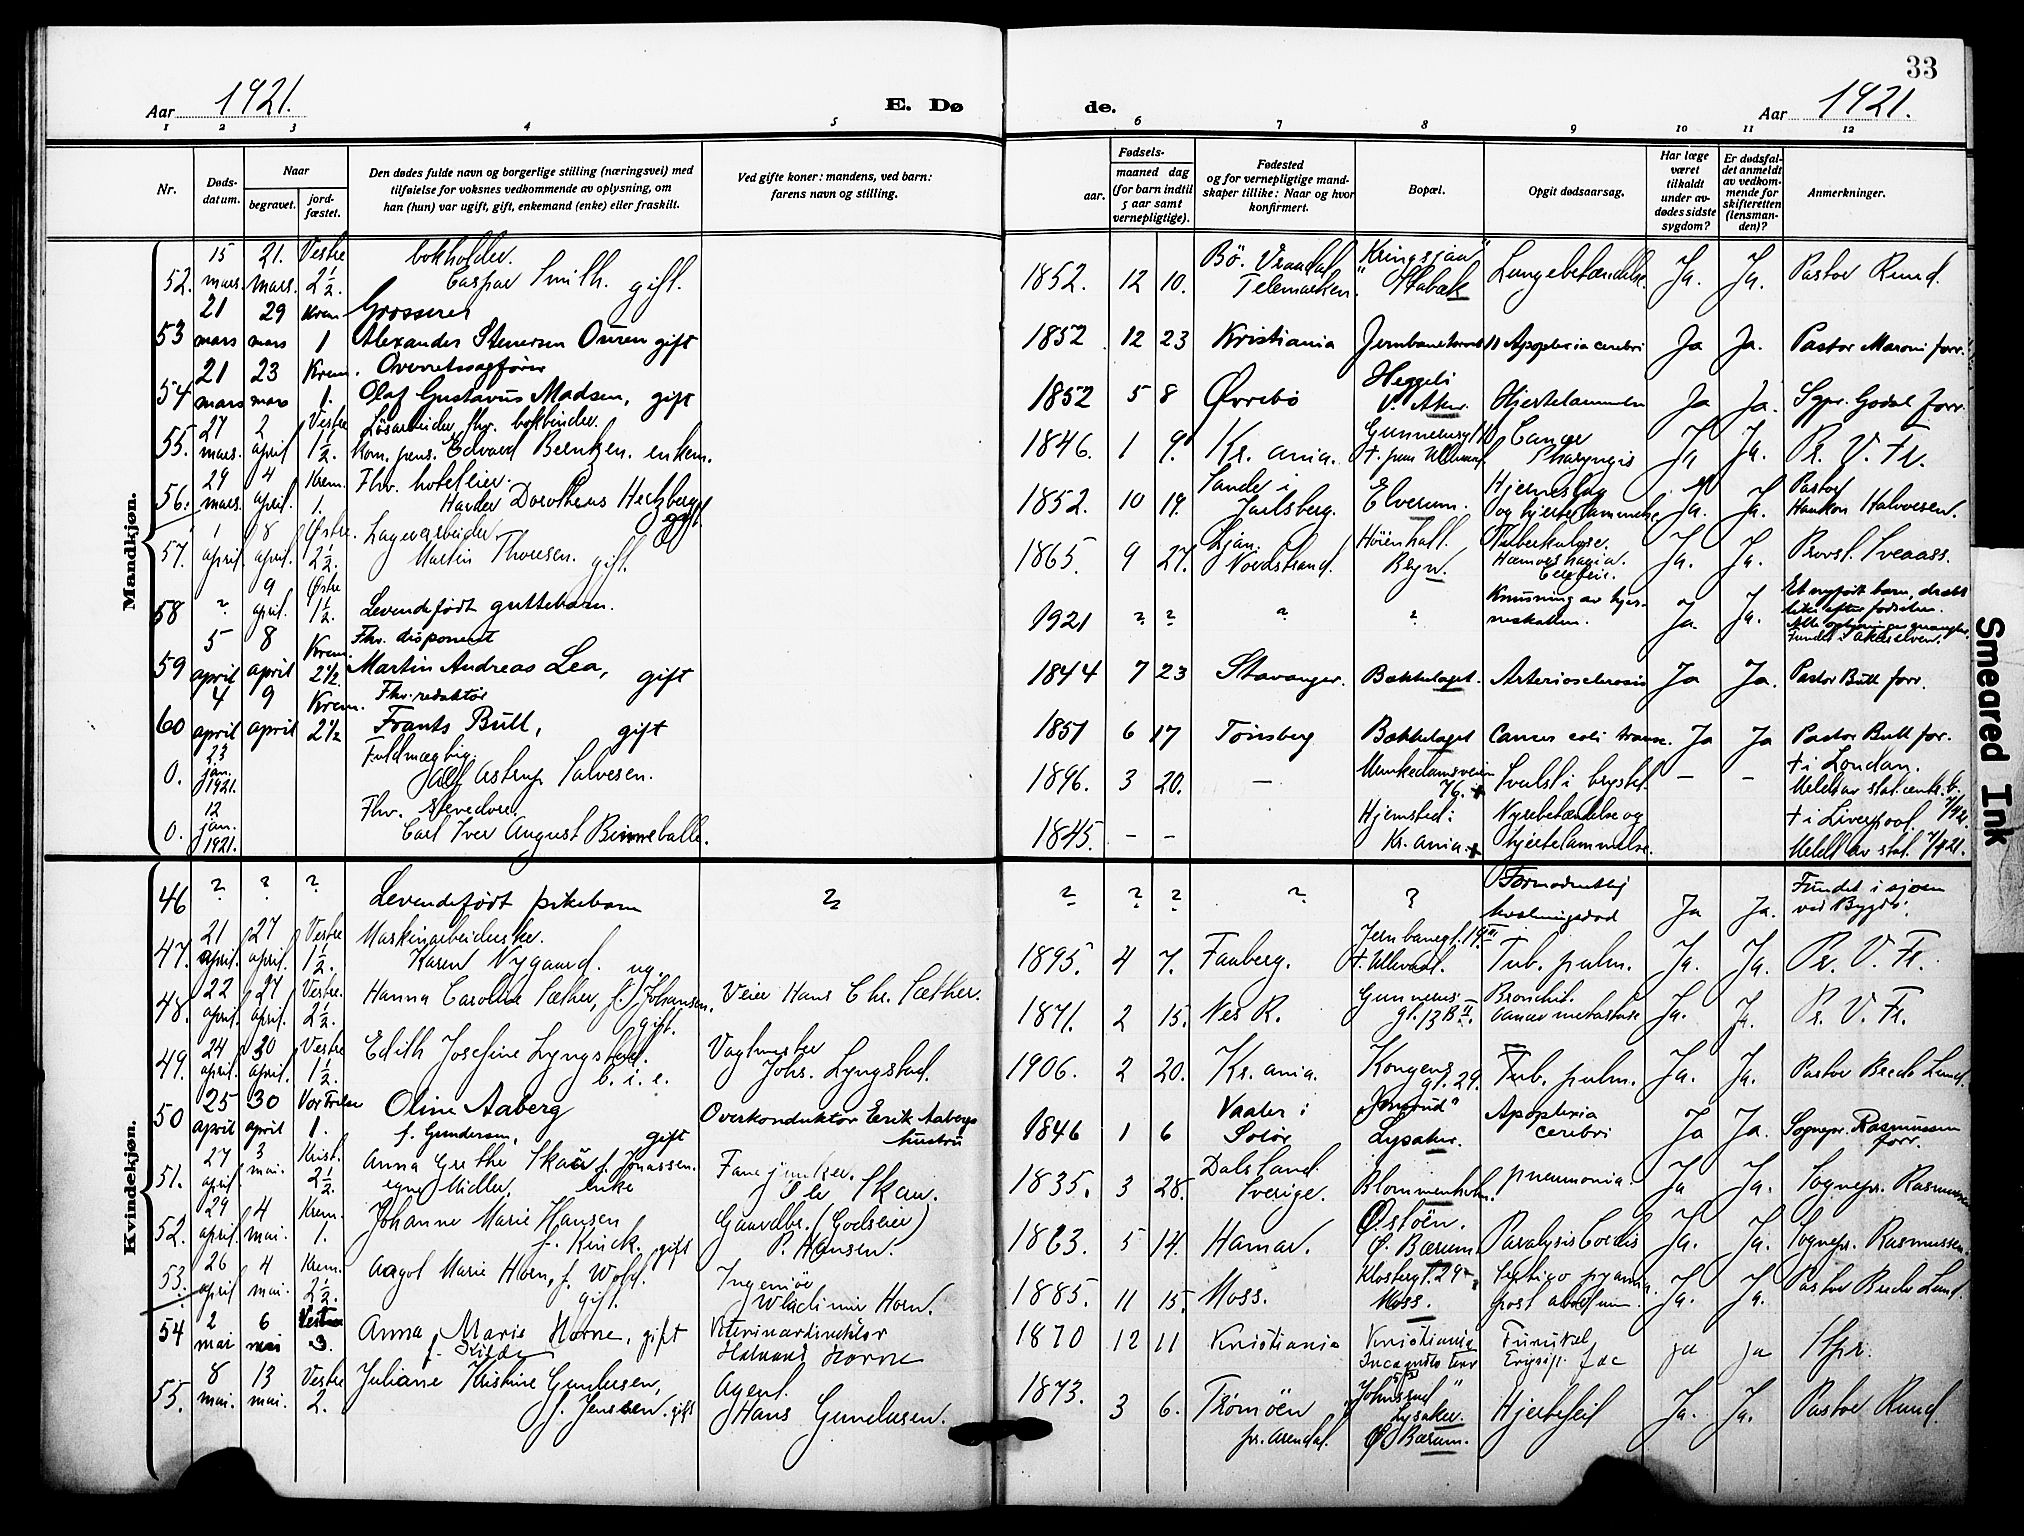 33
Aar 1921.
E. Dø de.
Aar 1921.
1 2 3 4 5 6 7 8 9 10 11 12
Nr.
Døds-datum.
Naar
begravet.
jord-fæstet.
Den dødes fulde navn og borgerlige stilling (næringsvei) med
tilføielse for voksnes vedkommende av oplysning, om
han (hun) var ugift, gift, enkemand (enke) eller fraskilt.
Ved gifte koner: mandens, ved barn:
farens navn og stilling.
Fødsels-
aar.
maaned dag
(for barn indtil
5 aar samt
vernepligtige).
Fødested
og for vernepligtige mand-
skaper tillike: Naar og hvor
konfirmert.
Bopæl.
Opgit dødsaarsag.
Har læge
været
tilkaldt
under av-
dødes sidste
sygdom?
Er dødsfal-
det anmeldt
av vedkom-
mende for
skifteretten
(lensman-
den)?
Anmerkninger.
Mandkjøn.
52. 15 mars. 21. mars. Vestre 2½. bokholder. Caspar Smith. gift. 1852. 12 10. Bö. Vraadal Telemarken. "Kringsjaa" Stabæk Lungebetændelse. Ja. Ja. Pastor Ruud.
53 21 mars 29 mars Krem 1 Grosserer Alexander Stenersen Ouren gift 1852 12 23 Kristiania Jernbanetorvet 11 Apoplexia cerebri Ja Ja. Pastor Maroni forr.
54 21 mars 23 mars Krem. 1. Overretssagfører Olaf Gustavus Madsen, gift 1852 5 8 Øvrebö Heggeli V. Aker. Hjertelammelse Ja Ja. Sgpr. Godal forr.
55. 27 mars. 2 april Vestre 1½. Løsarbeider, fhv. bokbinder. kom. pens. Edvard Berntzen. enkem. 1846. 1 9. Kr. ania. Gunnerusgt. Cancer Pharyngis Ja Ja. Pr. V. Fr.
56. 29 mars. 4 april. Krem. 1. Fhv. hoteleier. Harder Dorotheus Hertzberg gift 1852. 10 19. Sande i Jarlsberg. Elverum. Hjerneslag og hjertelammelse Ja. Ja. Pastor Haakon Halvorsen.
57. 1 april 8 april. Østre. 2½. Lagerarbeider Martin Thoresen. gift. 1865. 9 27. Ljan. Nordstrand. Tuberkulose. Ja. Ja. Provst. Sveaass.
58 ? 9 april. Østre 1½. Levendefødt guttebarn. 1921 ? ? ? ? Knusning av hjerneskallen. Ja. Ja. Et nyfødt barn, dræbt like efter fødselen. Alle oplysninger mangler. Fundet i Akerselven.
59 5 april 8 april Krem. 2½. Fhv. disponent Martin Andreas Lea, gift 1844 7 23 Stavanger. Bækkelaget. Arteriosclerosis Ja Ja. Pastor Bull forr.
60 4 april 9 april Krem. 2½ Fhv. redaktør Frants Bull, gift 1851 6 17 Tönsberg Bækkelaget Cancer coli transv. Ja Ja Pastor Bull for.
0. 23 jan. 1921. Fuldmægtig. Astrup Salvesen. 1896. 3 20. — Munkedamsveien 76. Svulst i brystet. — — † i London. Meldt av stat. centr. b. 7/4 21.
0. 12 jan. 1921. Fhv. stevedore. Carl Iver August Binneballe. 1845. — — Hjemsted: Kr. ania. Nyrebetændelse og hjertelammelse. † i Liverpool. Meldt av stat. 7/4 21.
Kvindekjøn.
46 ? ? ? Levendefödt pikebarn ? ? ? ? ? ? Formodentlig kvælningsdød Ja Ja. Fundet i sjøen ved Bygdö.
47. 21 april. 27 april. Vestre 1½. Maskinarbeiderske. Karen Nygaard. ug. 1895. 4 7. Faaberg. Jernbanegt. 19 III † Ullevaal. Tub. pulm. Ja. Ja. Pr. V. Fr.
48. 22 april. 27 april. Vestre. 2½. Hanna Caroline Sæther, f. Johansen. gift. Veier Hans Chr. Sæther. 1871. 2 15. Nes R. Gunnerus gt. 13 B II. Bronchit. Cancer metastase Ja. Ja. Pr. V. Fr.
49. 24 april. 30 april. Vestre 1½. Edith Josefine Lyngstad. b. i. e. Vagtmester Johs. Lyngstad. 1906. 2 20. Kr. ania. Kongens gt. 29. Tub. pulm. Ja. Ja. Pastor Brede Lund.
50 25 april 30 april Vor Frelser 1. Oline Aaberg f. Gundersen, gift Overkonduktör Erik Aabergs hustru 1846 1 6 Vaaler i Solör Lysaker. Apoplexia cerebri Ja Ja. Sognepr. Rasmussen forr.
51. 27 april. 3 mai. Krist. 2½. Anna Grethe Skau f. Jonassen. egne Midler. enke Fanejunker. Ole Skau. 1835. 3 28. Dalsland Sverige. Blommenholm. pneumonia. Ja Ja. Sognepr. Rasmussen
52. 29 april. 4 mai. Krem. 1. Johanne Marie Hansen f. Kinck. gift Gaardbr. (Godseier) P. Hansen. 1863. 5 14. Hamar. Ostöen. Ø. Bærum. Paralysis Cordis Ja. Ja. Sognepr. Rasmussen.
53. 26 april 4 mai. Krem. 2½. Aagot Marie Horn, f. Wold. gift. Ingeniör Wladimir Horn. 1885. 11 15. Moss. Klostergt. 29 Moss. post abortum. Ja. Ja. Pastor Brede Lund.
54 2 mai 6 mai Vestre 3. Anna Marie Horne, gift f. Kilde Veterinærdirektör Halvard Horne 1870 12 11 Kristiania Kristiania Incognito Terr Furunkel, Erysip. fac ja ja Stpr.
55. 8 mai. 13 mai. Vestre 2. Juliane Kristine Gundersen, f. Jenssen. gift Agent. Hans Gundersen. 1873. 3 6. Tromöen pr. Arendal. "Johnsrud" Lysaker. Ø. Bærum. Hjertefeil Ja. Ja. Pastor Ruud.
Smeared Ink